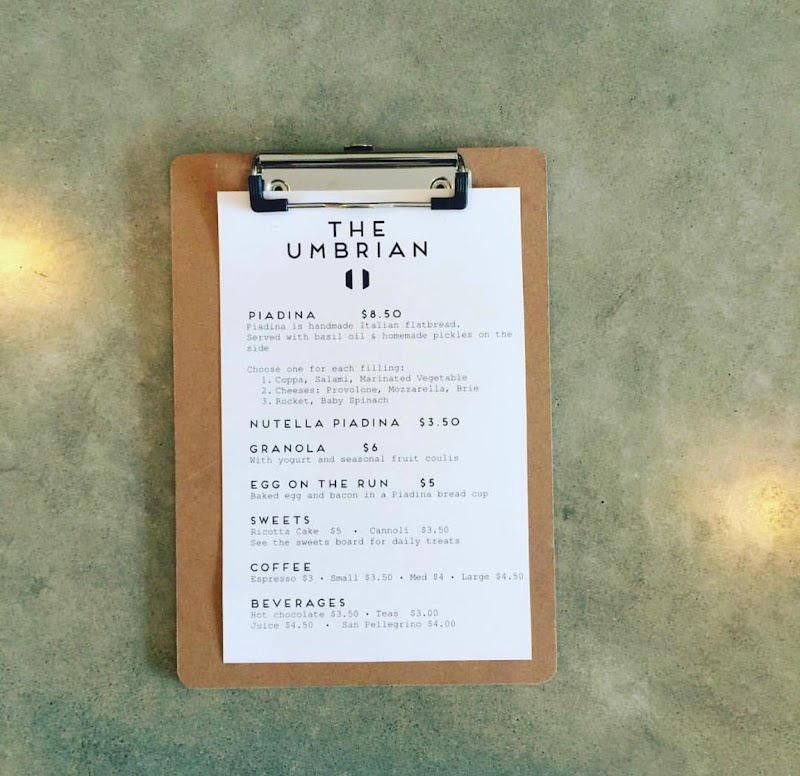 THE
UMBRIAN
PIADINA $8.50
Piadina is handmade Italian flatbread.
Served with basil oil & homemade pickles on the
side
Choose one for each filling:
1. Coppa, Salami, Marinated Vegetable
2. Cheeses: Provolone, Mozzarella, Brie
3. Rocket, Baby Spinach
NUTELLA PIADINA $3.50
GRANOLA $6
With yogurt and seasonal fruit coulis
EGG ON THE RUN $5
Baked egg and bacon in a Piadina bread cup
SWEETS
Ricotta Cake $5 • Cannoli $3.50
See the sweets board for daily treats
COFFEE
Espresso $3 • Small $3.50 • Med $4 • Large $4.50
BEVERAGES
Hot chocolate $3.50 • Teas $3.00
Juice $4.50 • San Pellegrino $4.00